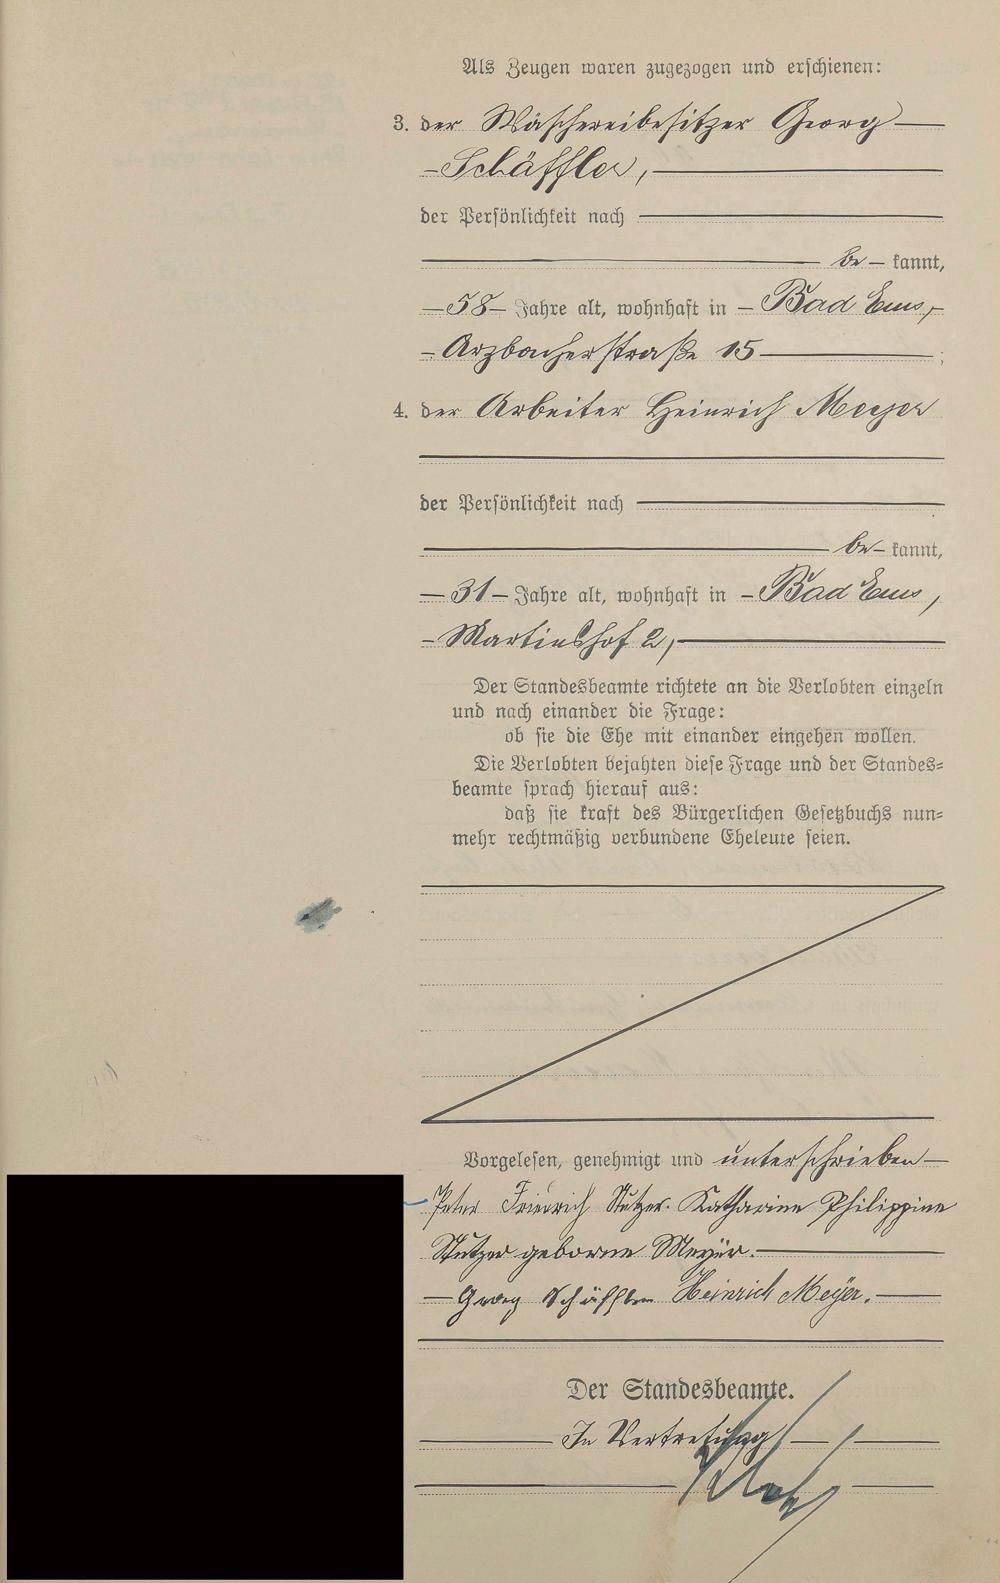 Als Zeugen waren zugezogen und erschienen:
3. der Wäschereibesitzer Georg
Schäffler,
der Persönlichkeit nach
be- kannt,
58 Jahre alt, wohnhaft in Bad Ems,
Arzbacherstraße 15 ;
4. der Arbeiter Heinrich Meyer
der Persönlichkeit nach
be- kannt,
31 Jahre alt, wohnhaft in Bad Ems,
Martinshof 2,
Der Standesbeamte richtete an die Verlobten einzeln
und nach einander die Frage:
ob sie die Ehe mit einander eingehen wollen.
Die Verlobten bejahten diese Frage und der Standes=
beamte sprach hierauf aus:
daß sie kraft des Bürgerlichen Gesetzbuchs nun=
mehr rechtmäßig verbundene Eheleute seien.
Vorgelesen, genehmigt und unterschrieben
Peter Friedrich Stutzer. Katharine Philippine
Stutzer geborne Meyer.
Georg Schäffler Heinrich Meÿer.
Der Standesbeamte.
In Vertretung